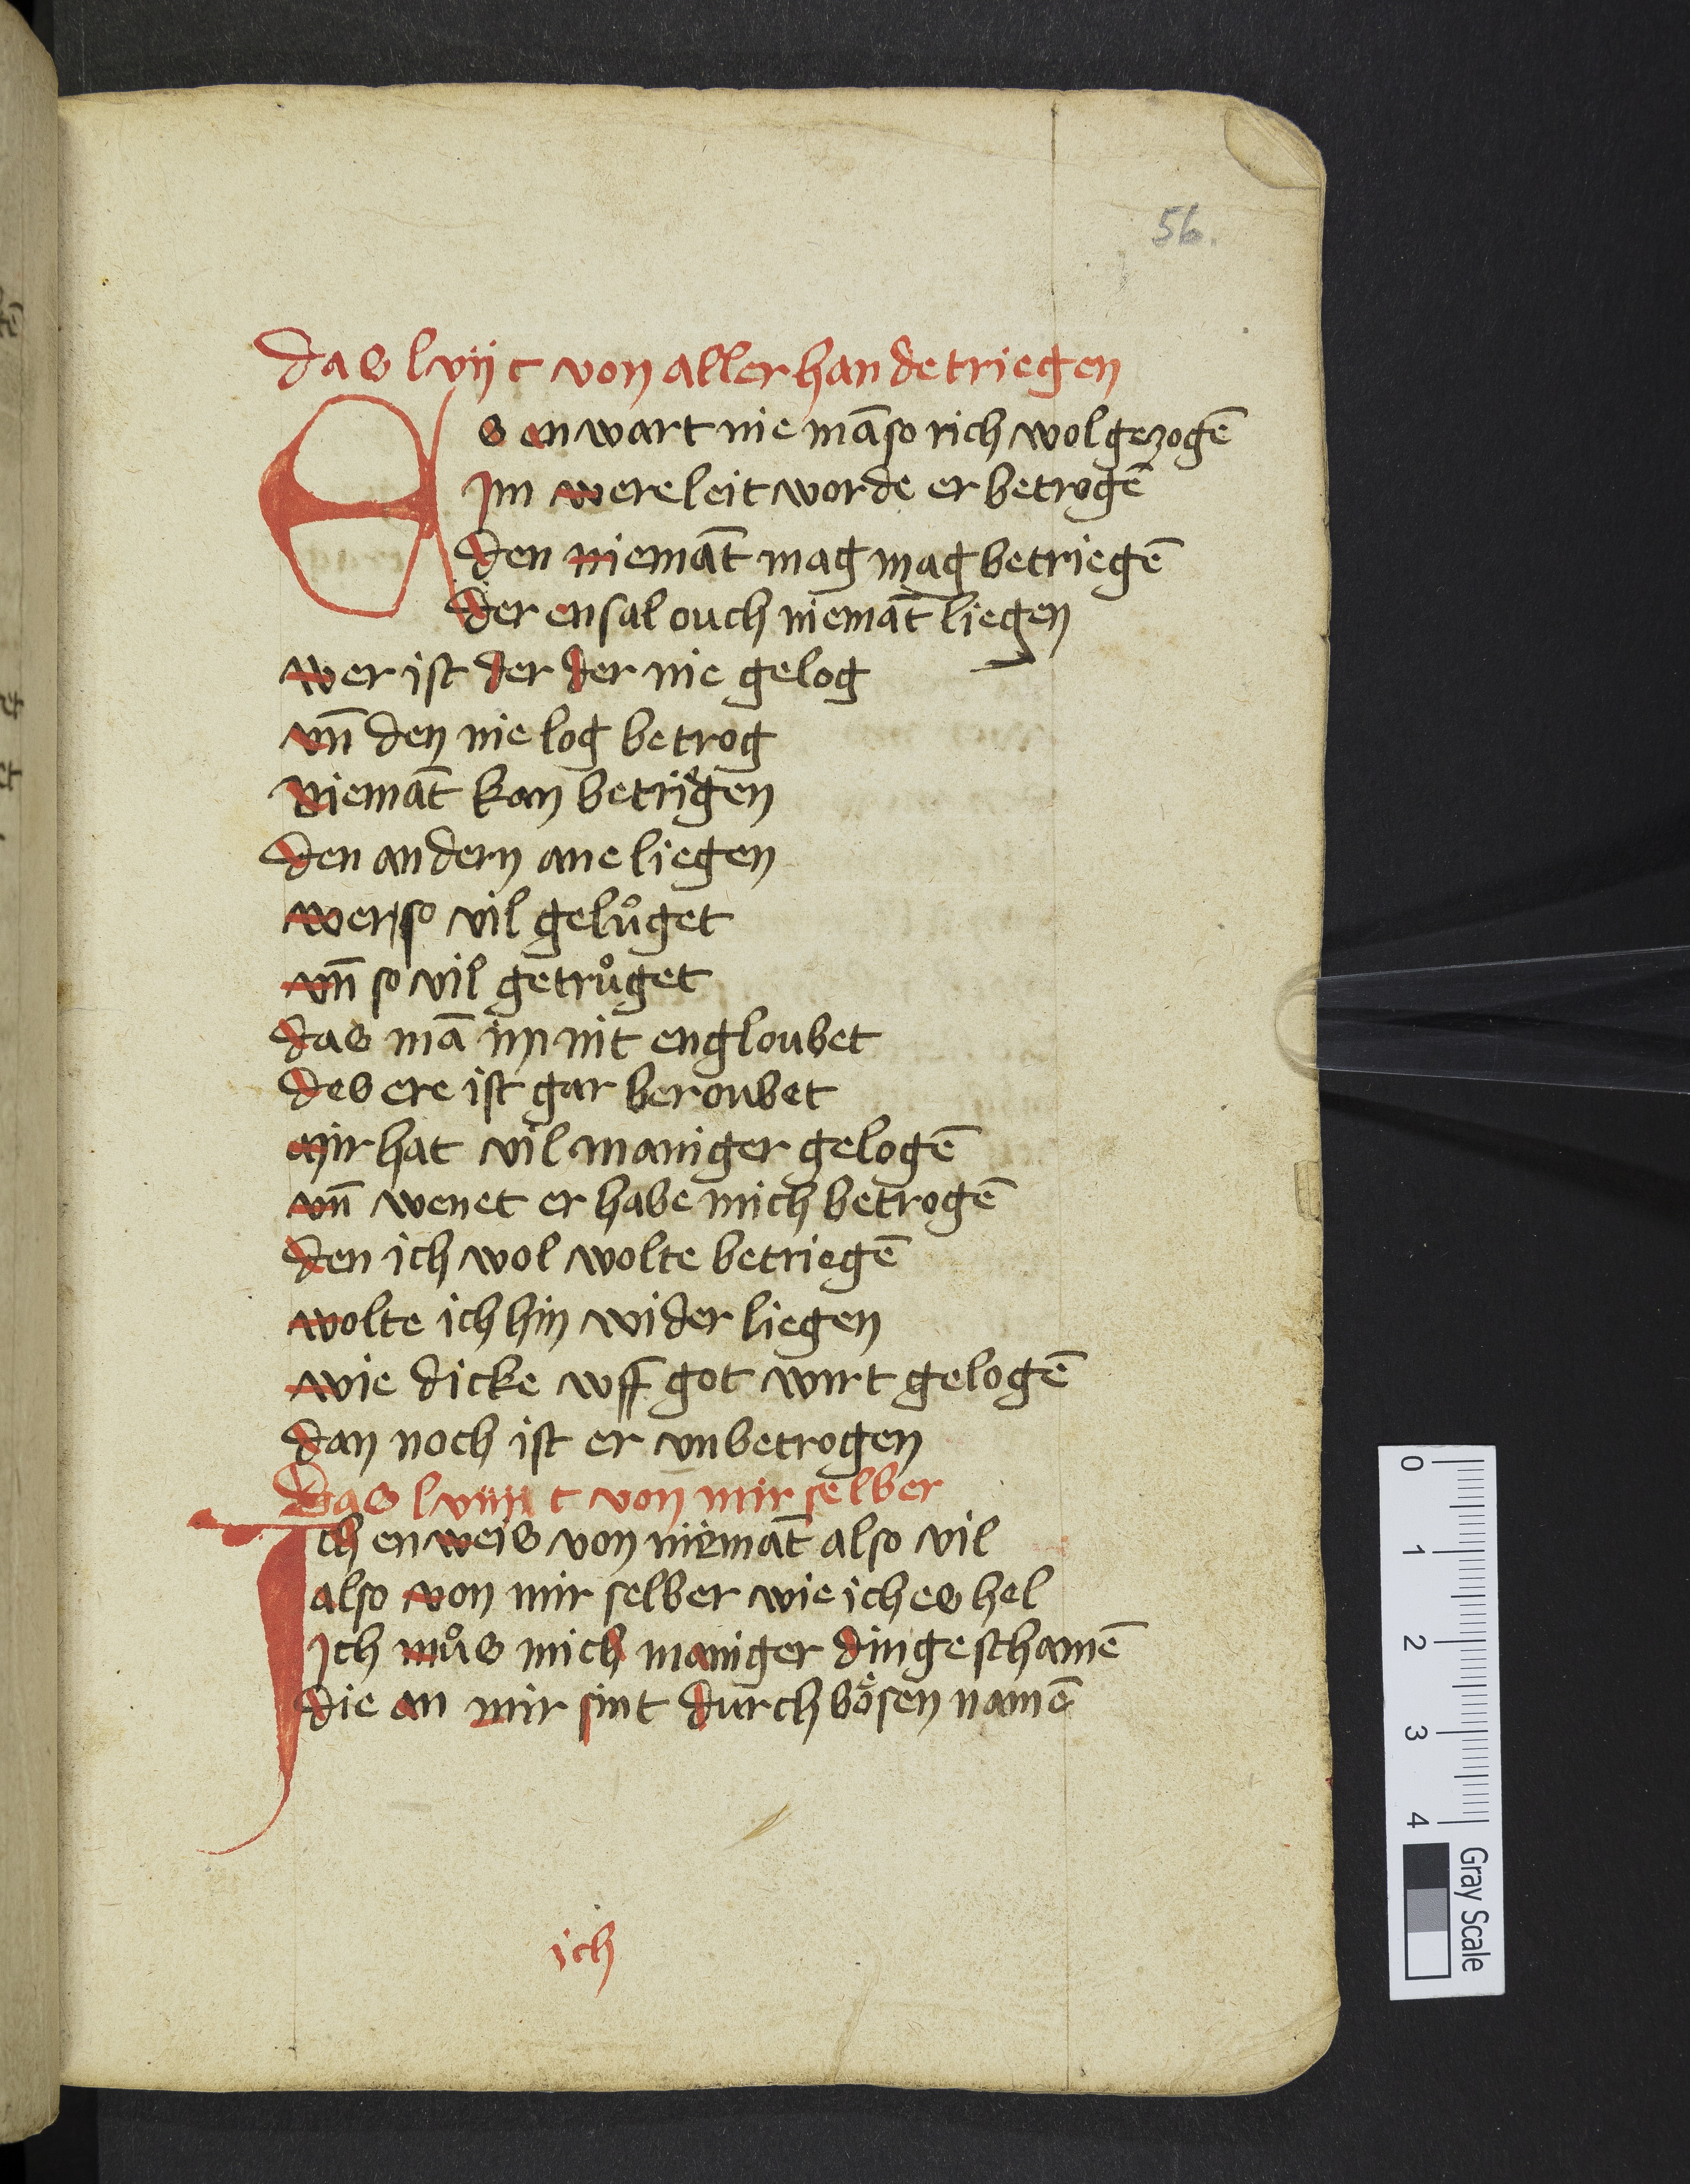 56.
das lvij c von aller hande triegen
Es en wart nie mā so rich wol gezogē
Im were leit worde er betrogē
den niemāt mag mag betriegē
der en sal ouch niemāt liegen
wer ist der der nie gelog
vn̄ den nie log betrog
niemāt kan betrigen
den andern ane liegen
wer so vil gelůget
vn̄ so vil getrůget
das mā im nit engloubet
des ere ist gar beroubet
mir hat vil maniger gelogē
vn̄ wenet er habe mich betrogē
den ich wol wolte betriegē
wolte ich hin wider liegen
wie dicke vff got wirt gelogē
dan noch ist er vnbetrogen
Das lviij c von mir selber
Ich en weis von niemāt also vil
also von mir selber wie ich es hel
Ich můs mich maniger dinge schamē
die an mir sint durch bösen namē
ich
0
1
2
3
4
Gray Scale